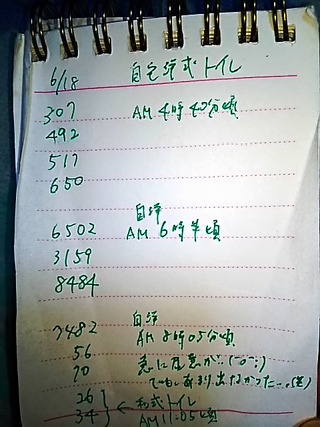 6/18 自宅洋式トイレ
307 AM 4時40分頃
492
517
650
自洋
6502 AM 6時半頃
3159
8484
自洋
7482 AM 8時05分頃
56 急に尿意が…(-o-;)
70 でもあまり出なかった…(笑)
26
34 ← 和式トイレ
AM11:05頃